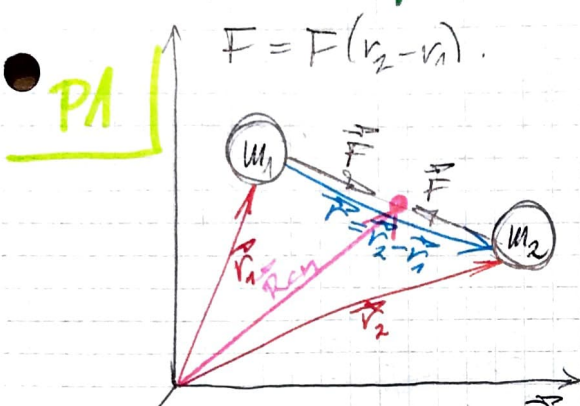 F = F(r₂-r₁).
P1
m₁
F⃗
F⃗
r⃗ = r⃗₂-r⃗₁
m₂
r⃗₁
R⃗cm
r⃗₂